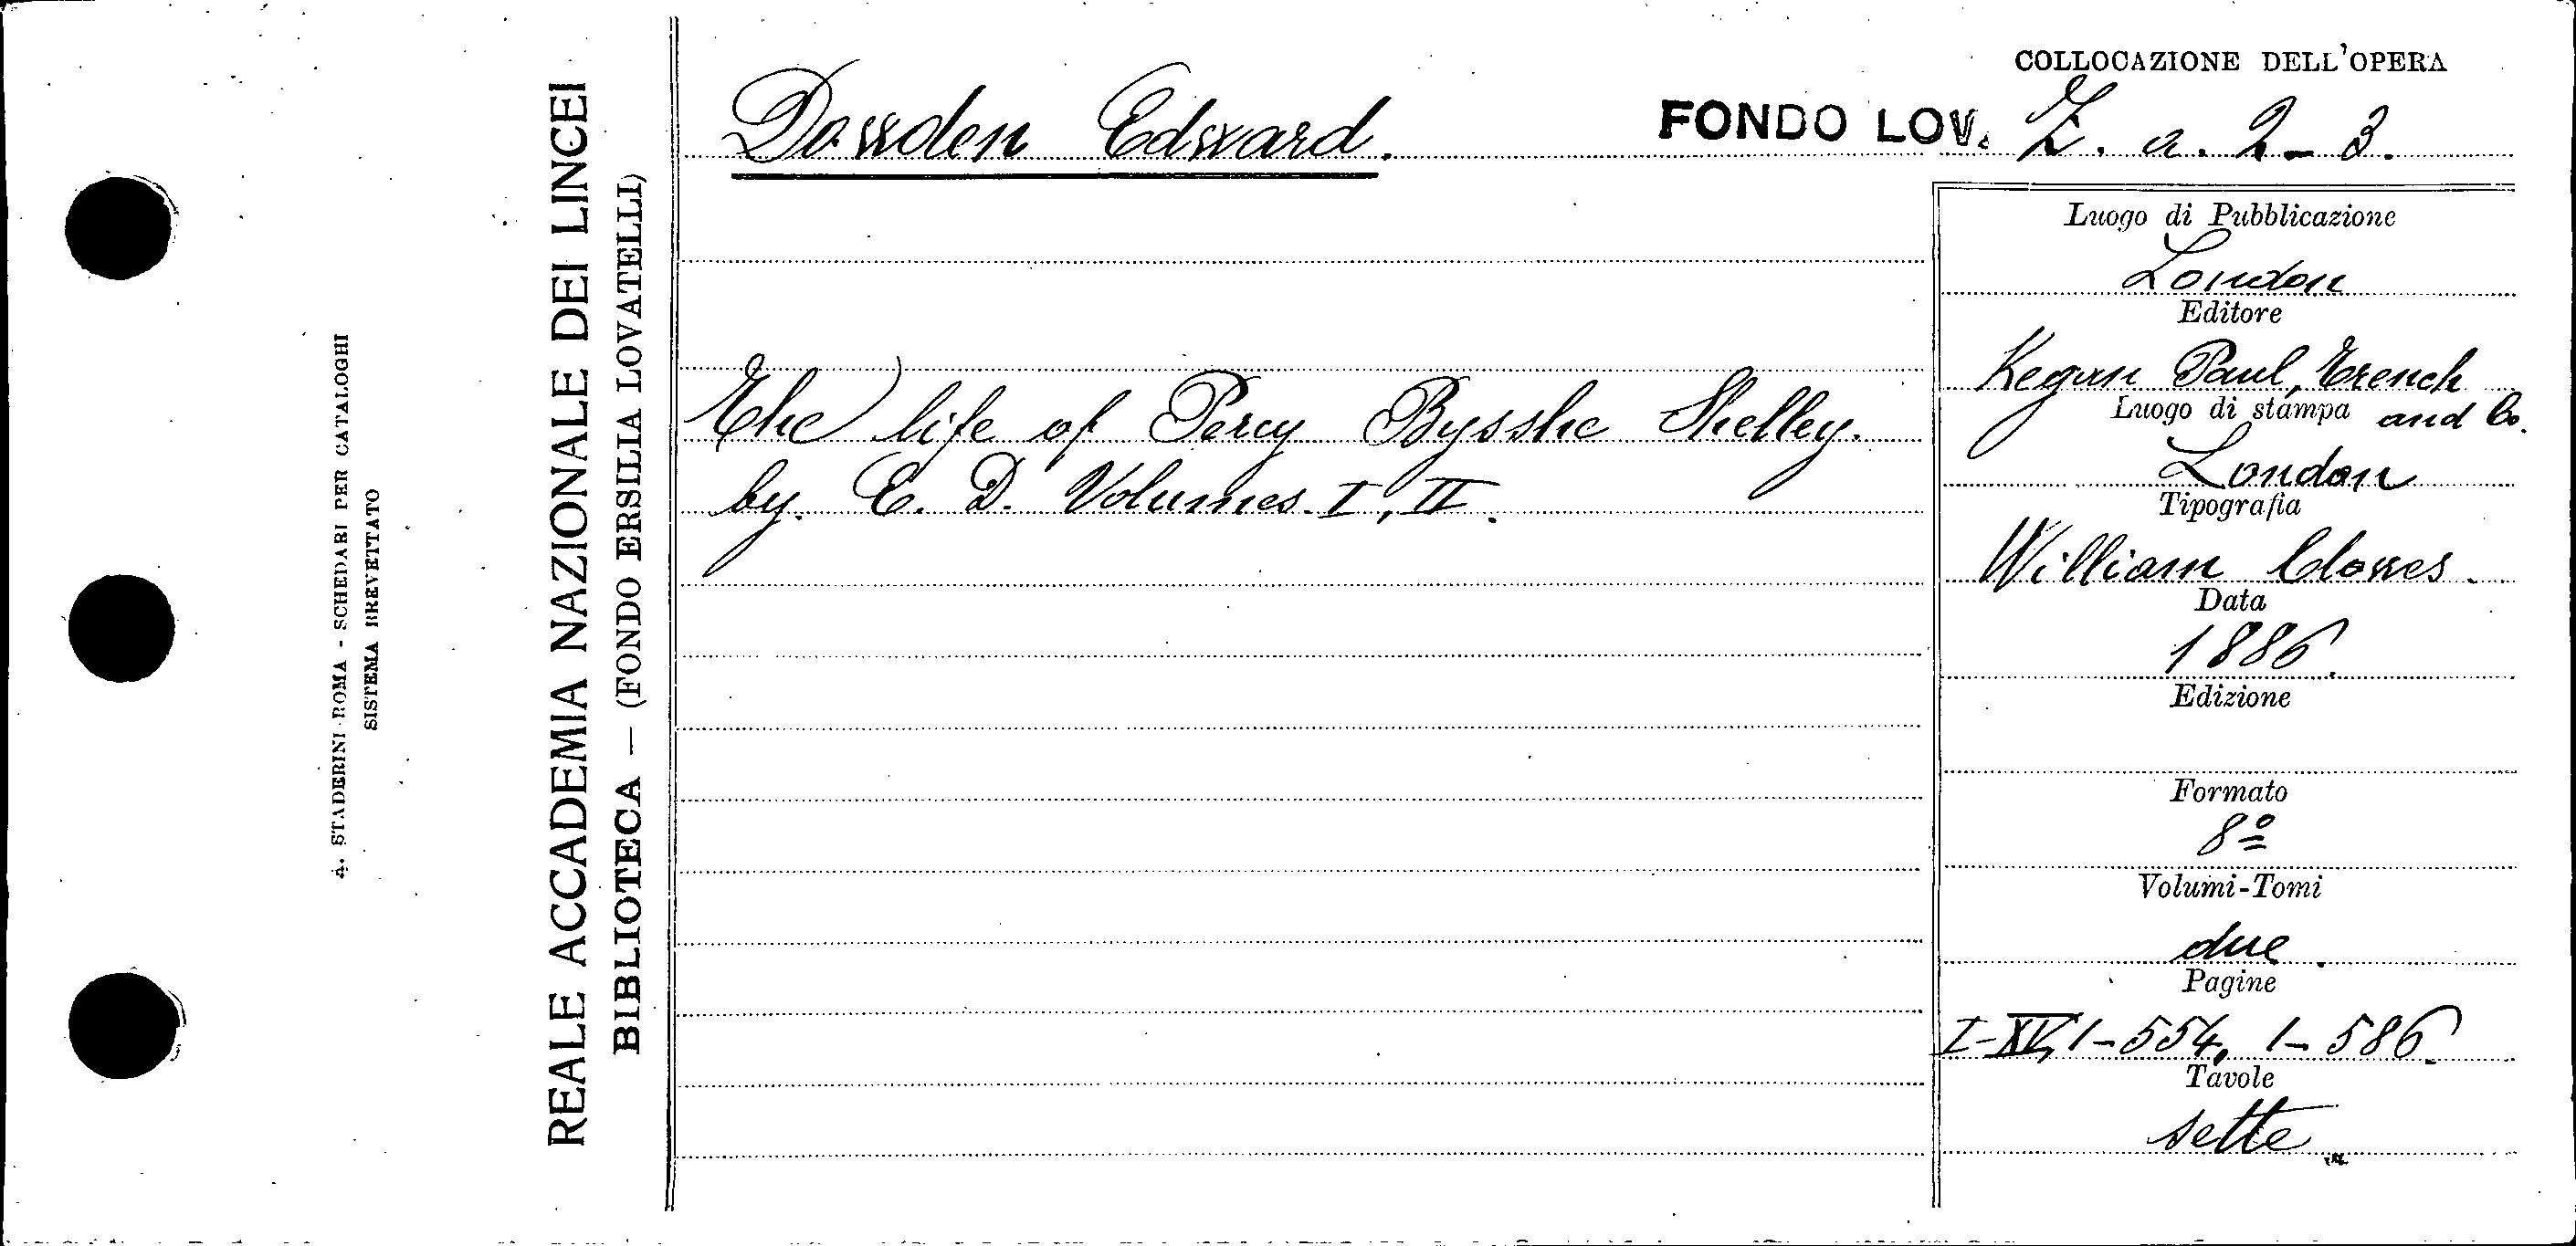 COLLOCAZIONE DELL'OPERA
Dowden Edward.
FONDO LOV. Z. a. 2-3.
The life of Percy Bysshe Shelley.
by. E. D. Volumes. I, II.
Luogo di Pubblicazione
London
Editore
Kegan Paul, Trench
and Co.
Luogo di stampa
London
Tipografia
William Clowes.
Data
1886.
Edizione
Formato
8º
Volumi-Tomi
due.
Pagine
I-XV, 1-554, 1-586.
Tavole
sette
REALE ACCADEMIA NAZIONALE DEI LINCEI
BIBLIOTECA — (FONDO ERSILIA LOVATELLI)
A. STADERINI - ROMA - SCHEDARI PER CATALOGHI
SISTEMA BREVETTATO